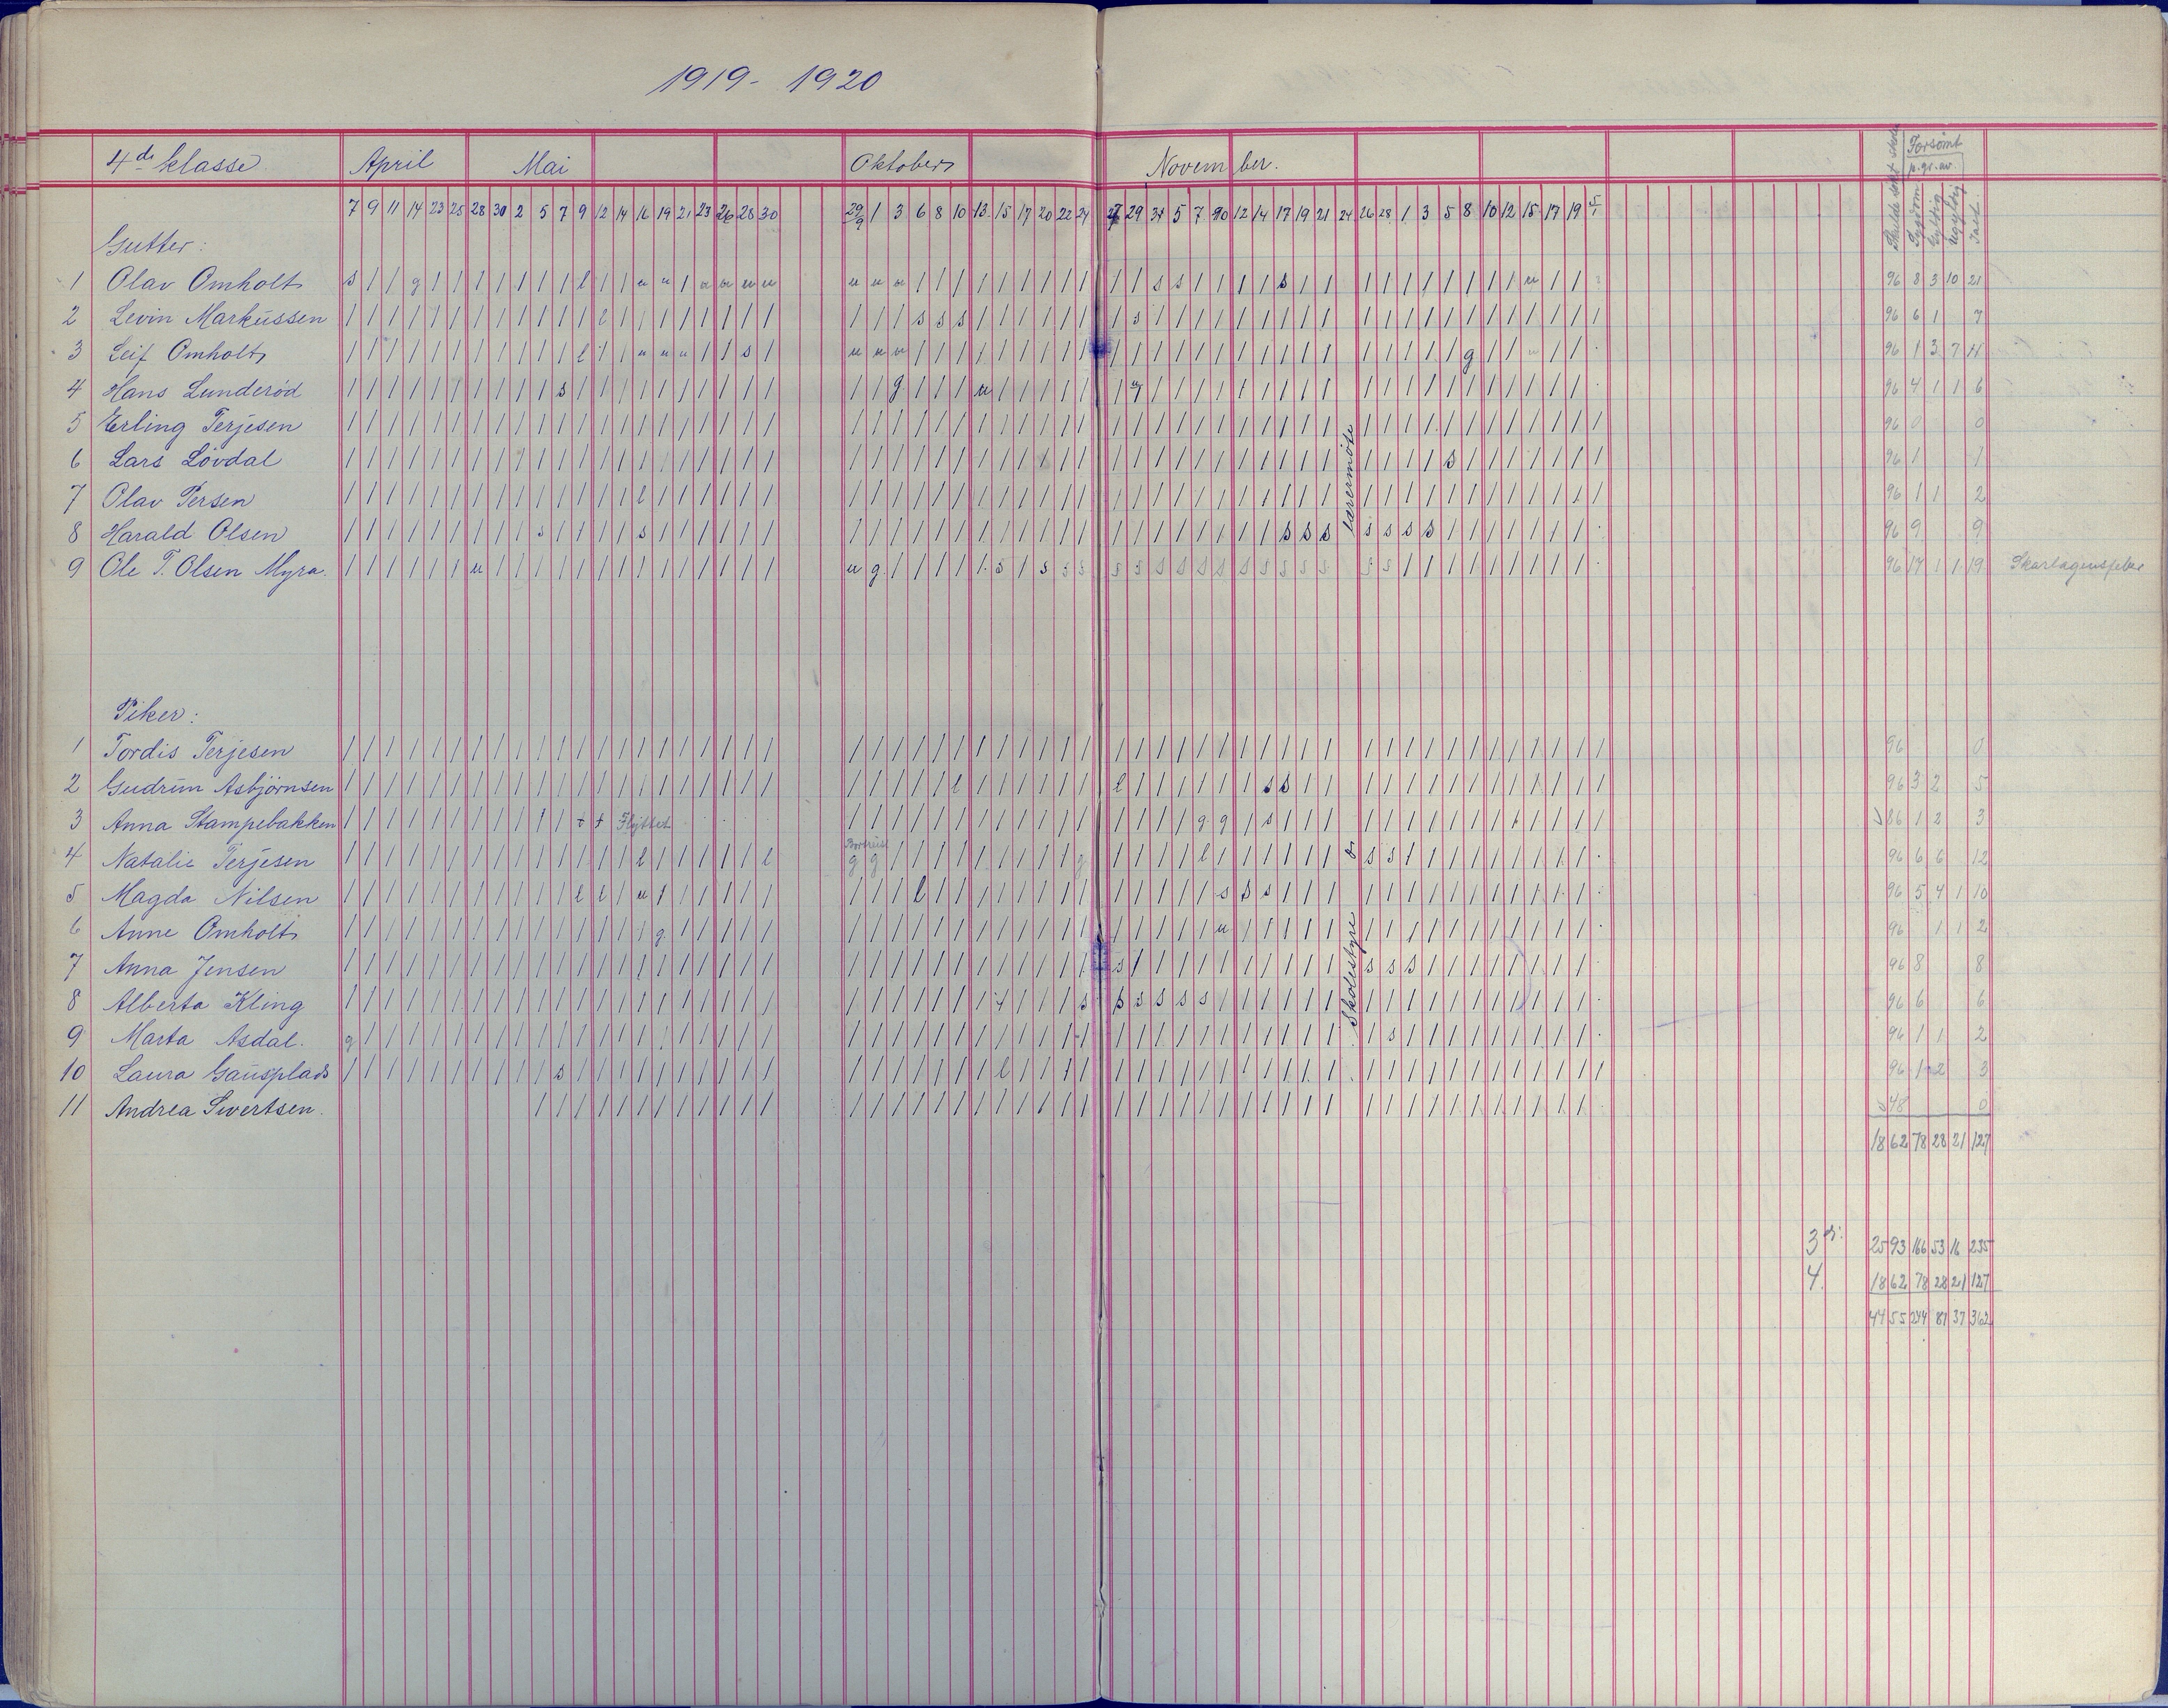 1919 - 1920
4de klasse April Mai Oktober November. Forsømt
p.gr.av.
Skulde søkt skolen Sygdom Gyldig Ugyldig Ialt
7 9 11 14 23 25 28 30 2 5 7 9 12 14 16 19 21 23 26 28 30 29/9 1 3 6 8 10 13 15 17 20 22 24 27 29 31 5 7 10 12 14 17 19 21 24 26 28 1 3 5 8 10 12 15 17 19 5/1
Gutter:
1 Olav Omholt s / / g / / / / / / / l / / u u / u u u u u u u / / / / / / / / / / / s s / / / / s / / / / / / / / / / u / / 96 8 3 10 21
2 Levin Markussen / / / / / / / / / / / / l / / / / / / / / / / / s s s / / / / / / / s / / / / / / / / / / / / / / / / / / / / / 96 6 1 7
3 Leif Omholt / / / / / / / / / / / l / / u u u / / s / u u u / / / / / / / / / / / / / / / / / / / / / / / / / g / / u / / 96 1 3 7 11
4 Hans Lunderød / / / / / / / / / / s / / / / / / / / / / / / g / / / u / / / / / / / / / / / / / / / / / / / / / / / / / / 96 4 1 1 6
5 Erling Terjesen / / / / / / / / / / / / / / / / / / / / / / / / / / / / / / / / / / / / / / / / / / / / / / / / / / / / / / / / 96 0 0
6 Lars Løvdal / / / / / / / / / / / / / / / / / / / / / / / / / / / / / / / / / / / / / / / / / / / / / / / / s / / / / / / / 96 1 1
7 Olav Persen / / / / / / / / / / / / / / l / / / / / / / / / / / / / / / / / / / / / / / / / / / / / / / / / / / / / / / / 96 1 1 2
8 Harald Olsen / / / / / / / / / s / / / / s / / / / / / / / / / / / / / / / / / / / / / / / / / s s s s s s s / / / / / / / 96 9 9
9 Ole T. Olsen Myra. / / / / / / u / / / / / / / / / / / / / / u g / / / / / s / s s s s s s s s s s s s s s s s / / / / / / / / / 96 17 1 1 19 Skarlagensfeber
lærermøte
Piker:
1 Tordis Terjesen / / / / / / / / / / / / / / / / / / / / / / / / / / / / / / / / / / / / / / / / / / / / / / / / / / / / / / / / 96 0
2 Gudrun Asbjørnsen / / / / / / / / / / / / / / / / / / / / / / / / / / l / / / / / / l / / / / / / s s / / / / / / / / / / / / / / 96 3 2 5
3 Anna Stampebakken / / / / / / / / / / / + + Flyttet / / / / / / / / / / / / / / / / g g / s / / / / / / / / / / / / / / / 86 1 2 3
Borthüst
4 Natalie Terjesen / / / / / / / / / / / / / / l / / / / / l g g / / / / / / / / / g / / / / l / / / / / / s s / / / / / / / / / 96 6 6 12
5 Magda Nilsen / / / / / / / / / / / l l / u / / / / / / / / / l / / / / / / / / / / / / / s s s / / / / / / / / / / / / / / 96 5 4 1 10
6 Anne Omholt / / / / / / / / / / / / / / / g / / / / / / / / / / / / / / / / / / / / / / u / / / / / / / / / / / / / / / / 96 1 1 2
7 Anna Jensen / / / / / / / / / / / / / / / / / / / / / / / / / / / / / / / / / s / / / / / / / / / / s s s / / / / / / / / 96 8 8
8 Alberta Kling / / / / / / / / / / / / / / / / / / / / / / / / / / / / / / / / s s s s s s / / / / / / / / / / / / / / / / / 96 6 6
9 Marta Asdal. g / / / / / / / / / / / / / / / / / / / / / / / / / / / / / / / / / / / / / / / / / / / / s / / / / / / / / / 96 1 1 2
10 Laura Gausplads / / / / / / / / / / s / / / / / / / / / / / / / / / / / l / / / / / / / / / / / / / / / / / / / / / / / / / / / 96 1 2 3
11 Andrea Sivertsen. / / / / / / / / / / / / / / / / / / / / / / / / / / / / / / / / / / / / / / / / / / / / / / 48 0
Skolestyre
1862 78 28 21 127
3 2593 166 53 16 235
4. 1862 78 28 21 127
4455 244 81 37 362